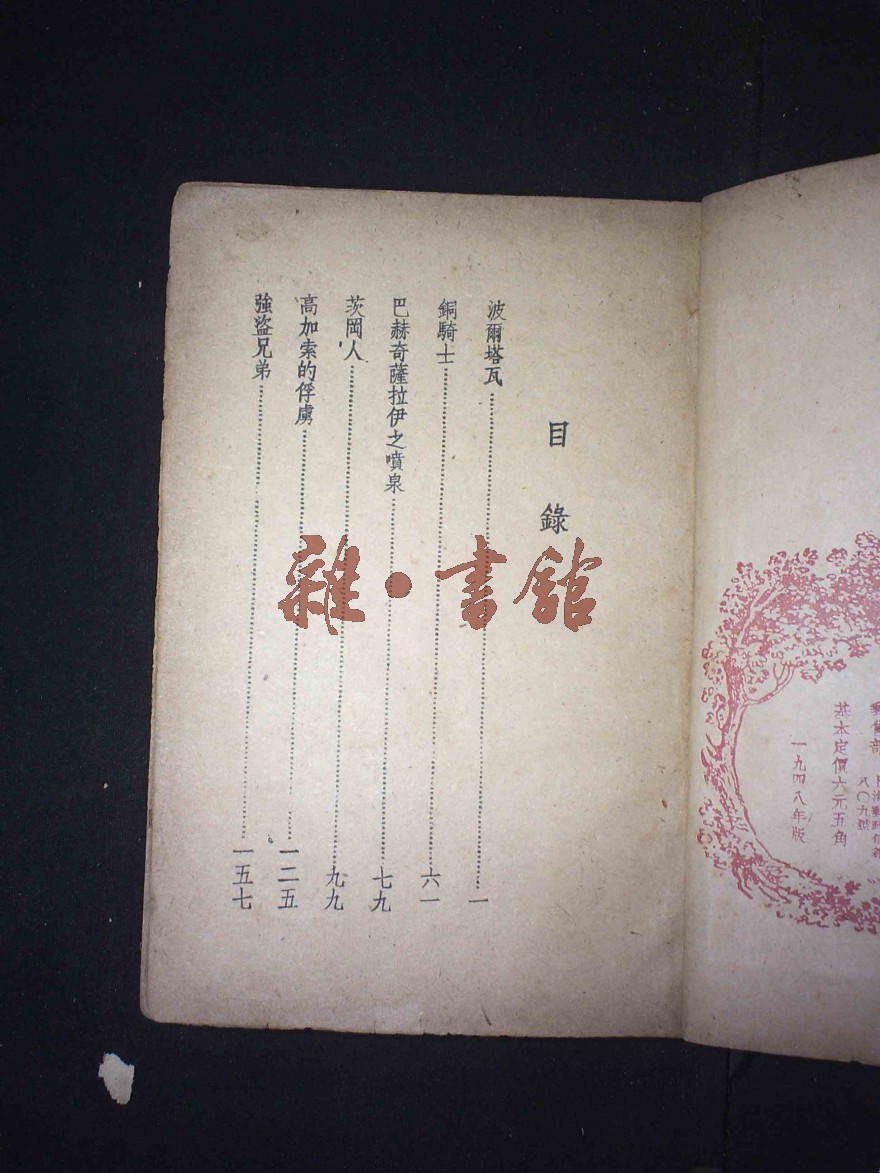 目錄
波爾塔瓦 一
銅騎士 六一
巴赫奇薩拉伊之噴泉 七九
茨岡人 九九
高加索的俘虜 一二五
強盜兄弟 一五七
雜·書館
八〇九號
基本定價六元五角
一九四八年版